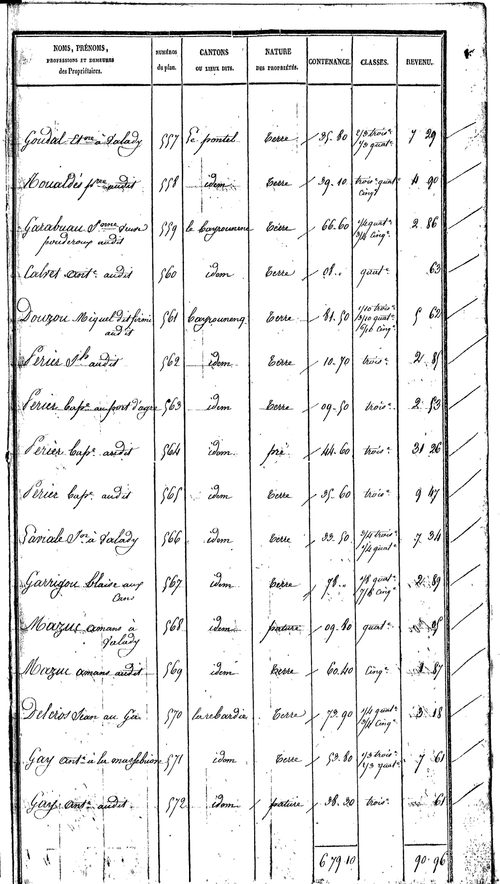 NOMS, PRÉNOMS, PROFESSIONS ET DEMEURES des Propriétaires. | NUMÉROS du plan. | CANTONS OU LIEUX DITS. | NATURE DES PROPRIÉTÉS. | CONTENANCE. | CLASSES. | REVENU.
Goudal à Valady 557 Le pontel Terre 35.80 2/3 trois. 1/3 quat. 7 29
audit 558 idem Terre 39.10 trois. quat. cinq. 4 90
Garabuau
audit 559 Terre 66.60 1/4 quat. 3/4 cinq. 2.86
Calvet ant. audit 560 idem Terre 08.. quat. 63
Douzou Miquel dit firmi
audit 561 Cayrouneng Terre 81.50 1/10 trois. 3/10 quat. 6/10 cinq. 5 62
Périer audit 562 idem Terre 10.70 trois. 2 85
Périer Cap. au fort d'agre 563 idem Terre 09.50 trois. 2.53
Périer Cap. audit 564 idem pré 44.60 trois. 31 26
Périer Cap. audit 565 idem Terre 35.60 trois. 9 47
Laviale à Valady 566 idem Terre 33.50 3/4 trois. 1/4 quat. 7.34
Garrigou blaise aux
Cans 567 idem Terre 78.. 1/8 quat. 7/8 cinq. 2.89
Mazuc amans à
Valady 568 idem pature 09.80 quat.
Mazuc amans audit 569 idem Terre 60.40 cinq. 1 87
Delcros Jean au Ga 570 la rebardie Terre 73.90 1/4 quat. 3/4 cinq. 3 18
Gay ant. à la 571 idem Terre 53.80 2/3 trois. 1/3 quat. 7 61
Gay ant. audit. 572 idem pature 38.30 trois. 61
6 79 10 90.96